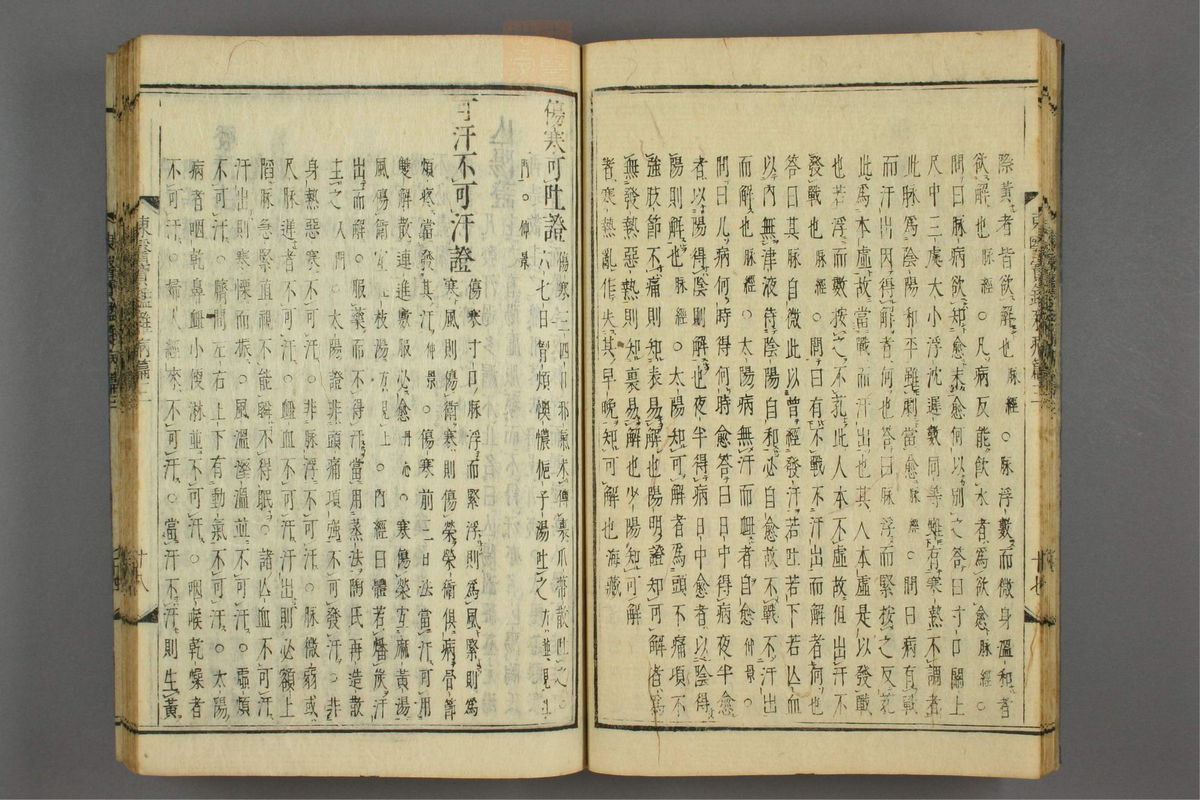 際黃者皆欲解也脉經○脉浮數而微身溫和者
欲解也脉經○凡病反能飮水者爲欲愈脉經○
問曰脉病欲知愈未愈何以別之答曰寸口關上
尺中三處大小浮沈遲數同等雖有寒熱不調者
此脉爲陰陽和平雖劇當愈脉經○問曰病有戰
而汗出因得解者何也答曰脉浮而緊按之反芤
此爲本虛故當戰而汗出也其人本虛是以發戰
也若浮而數按之不芤此人本不虛故但出汗不
發戰也脉經○問曰有不戰不汗出而解者何也
答曰其脉自微此以曾經發汗若吐若下若亾血
以內無津液待陰陽自和必自愈故不戰不汗出
而解也脉經○太陽病無汗而衄者自愈仲景○
問曰凡病何時得何時愈答曰日中得病夜半愈
者以陽得陰則解也夜半得病日中愈者以陰得
陽則解也脉經○太陽知可解者爲頭不痛項不
強肢節不痛則知表易解也陽明證知可解者爲
無發熱惡熱則知裏易解也少陽知可解
者寒熱亂作失其早晚知可解也海藏
東醫寶鑑雜病篇二 十七
傷寒可吐證傷寒三四日邪氣未傳裏瓜蔕散吐之○
六七日胷煩懊憹梔子湯吐之方並見上
門○仲景
可汗不可汗證傷寒寸口脉浮而緊浮則爲風緊則爲
寒風則傷衛寒則傷榮榮衛俱病骨節
煩疼當發其汗仲景○傷寒前三日法當汗可用
雙解散連進數服必愈丹心○寒傷榮宜麻黃湯
風傷衛宜桂枝湯方見上○內經曰體若燔炭汗
出而解○服藥而不得汗當用蒸法陶氏再造散
主之入門○太陽證非頭痛項強不可發汗○非
身熱惡寒不可汗○非脉浮不可汗○脉微弱或
尺脉遲者不可汗○衄血不可汗汗出則必額上
陷脉急緊直視不能瞬不得眠○諸亾血不可汗
汗出則寒慄而振○風溫濕溫並不可汗○虛煩
不可汗○臍間左右上下有動氣不可汗○太陽
病者咽乾鼻衄小便淋並不可汗○咽喉乾燥者
不可汗○婦人經來不可汗○當汗不汗則生黃
東醫寶鑑雜病篇二 十八